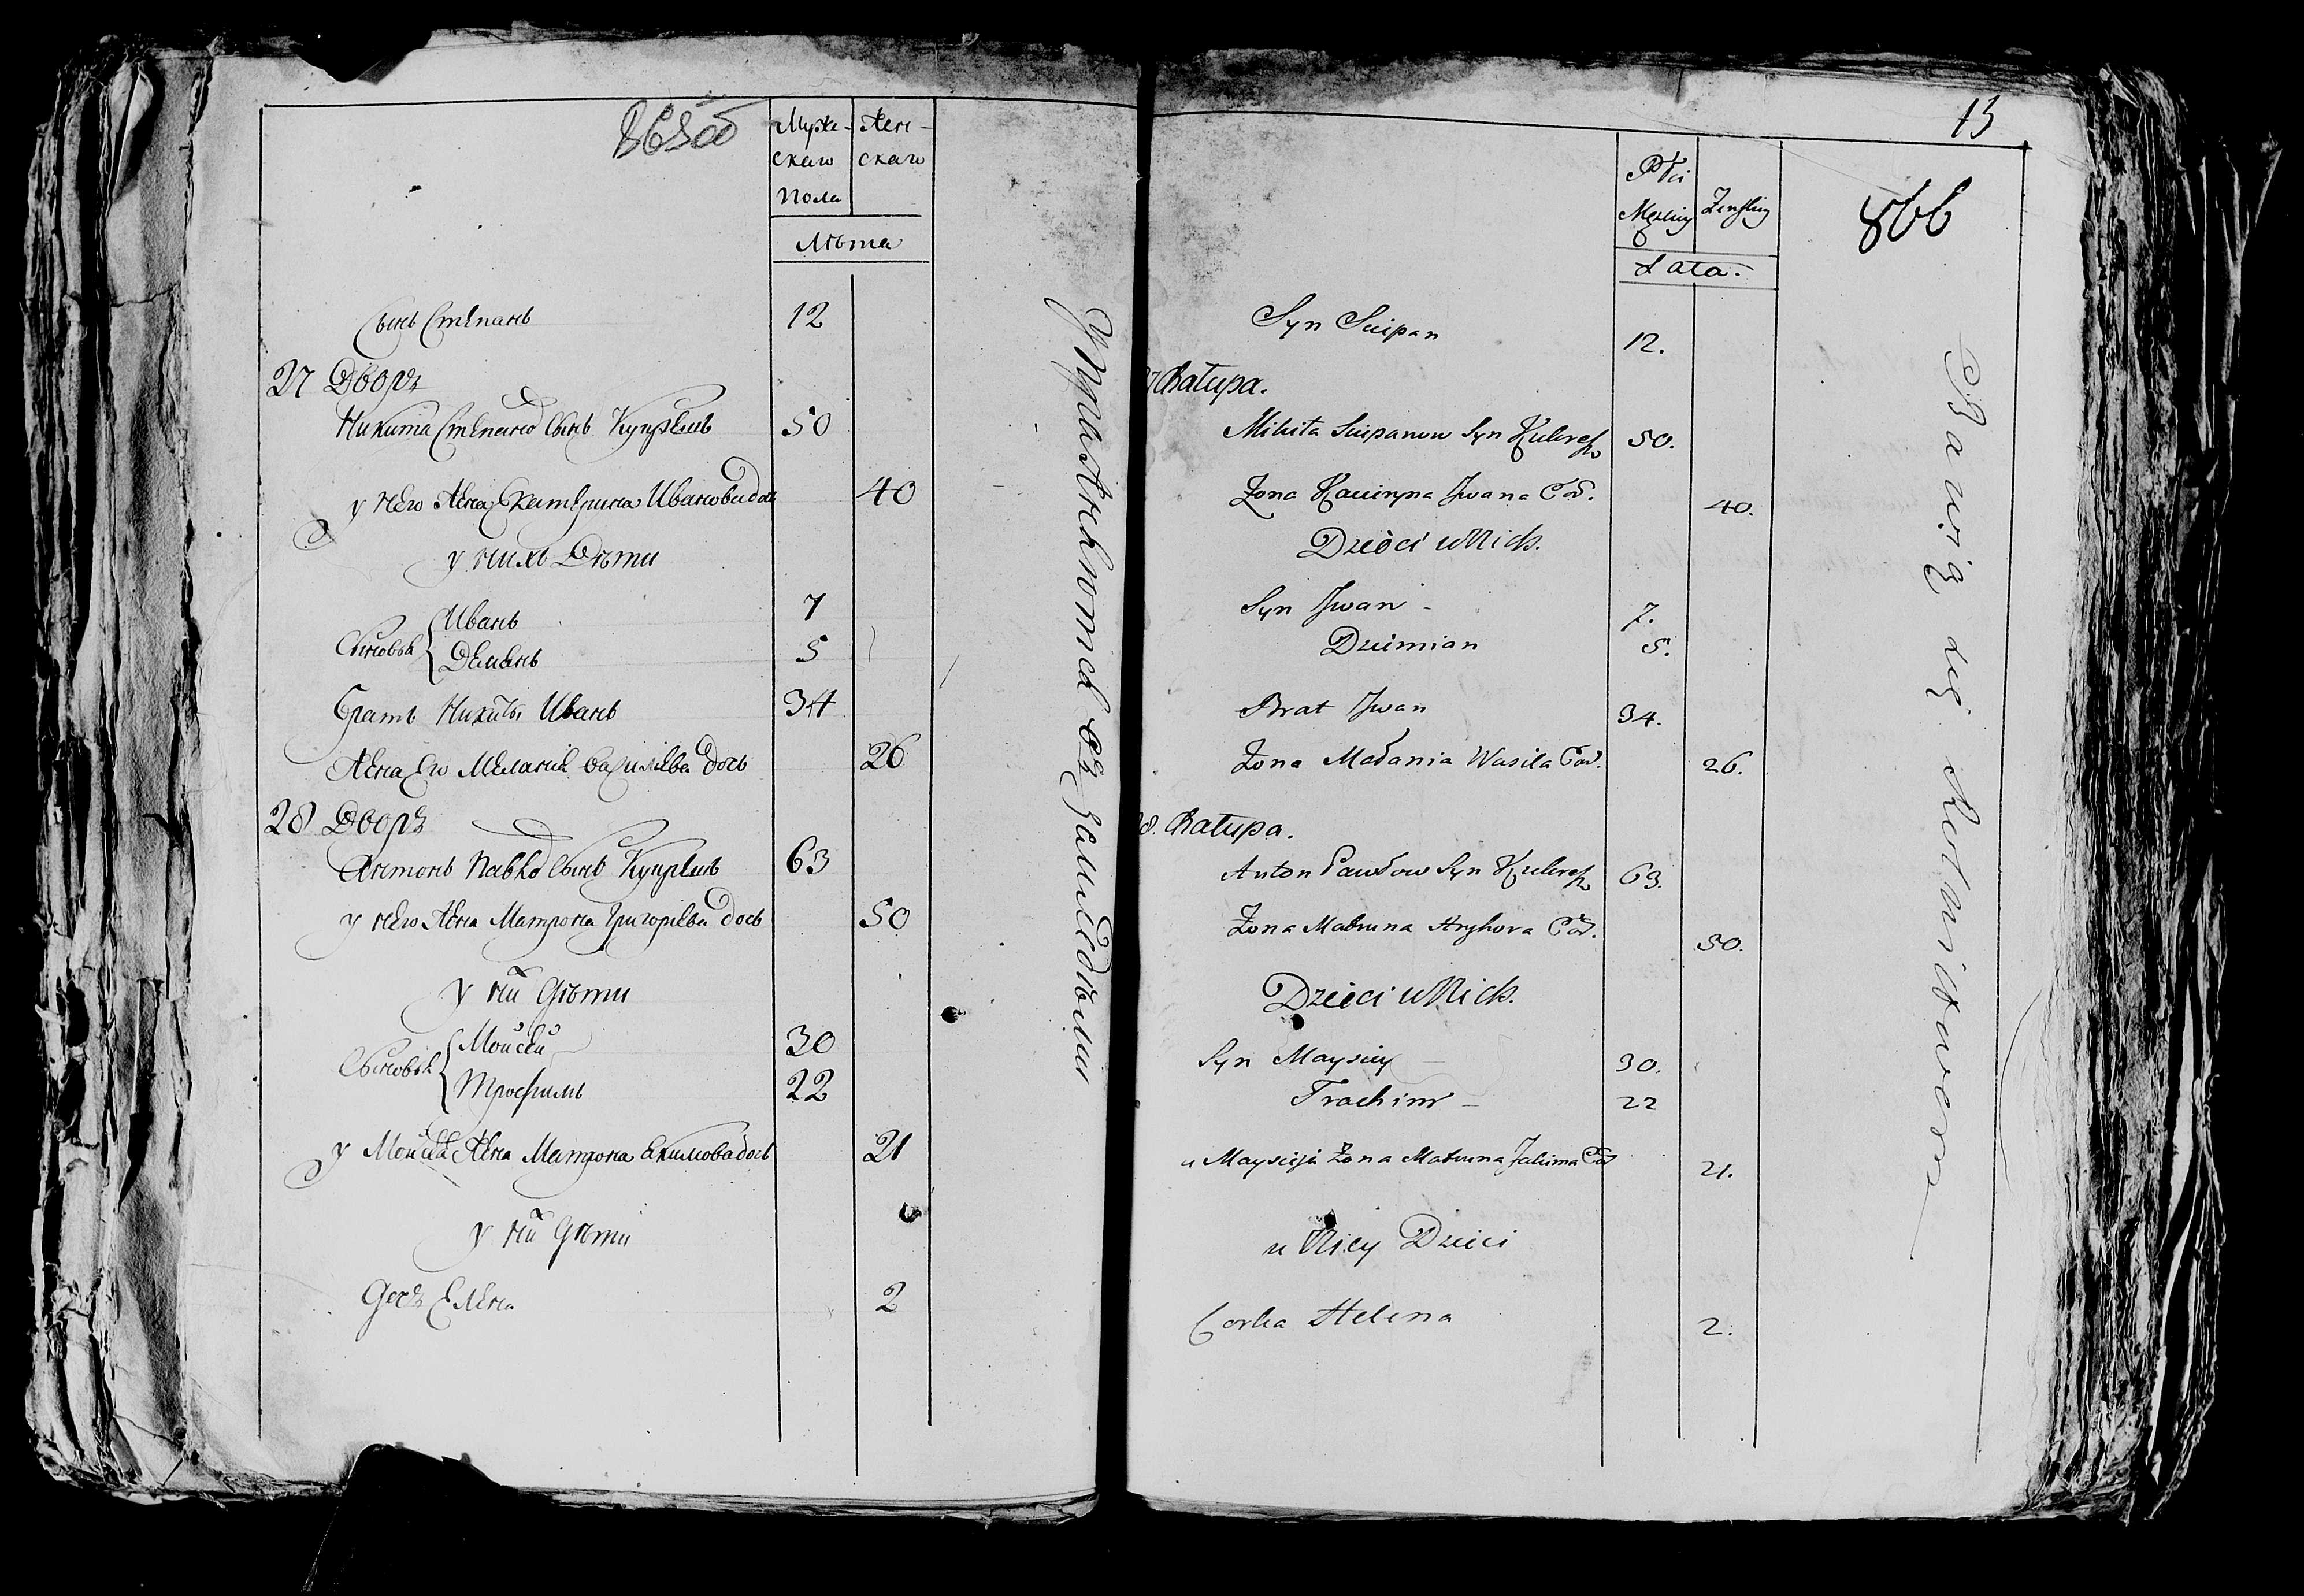 865об
Муже- Жен-
скаго скаго
пола
Лѣта
Сынъ Степанъ 12
27 Дворъ
Никита Степано Сынъ Купрѣевъ 50
у него Жена Екатерина Иванова дочь 40
у нихъ Дѣти
Сыновья Иванъ 7
Демьянъ 5
Братъ Никиты Иванъ 34
Жена Его Меланія василіева дочь 26
28 Дворъ
Антонъ Павло Сынъ Купрѣевъ 63
у него Жена Матрона Григоріева дочь 50
у ни дѣти
Сыновья Мойсей 30
Трофимъ 22
у Мойсея Жена Матрона Екимова дочь 21
у ни дѣти
дочъ Елена 2
13
866
Płci
Męzkiey Zenskiey
Łata.
Syn Sciepan 12.
Chałupa.
Mikita Sciepanow Syn 50.
Żona Kacieryna Jwana Cór. 40.
Dzieci u Nich.
Syn Jwan 7.
Dziemian 5.
Brat Jwan 34.
Żona Małania Wasila Cór. 26.
8. Chałupa.
Anton Pawłow Syn 63.
Żona Matruna Hryhora Cór. 50.
Dzieci u Nich.
Syn Maysiey 30.
Trochim 22
u Maysieja Żona Matruna Jakima Cór 21.
u Niey Dzieci
Corka Helena 2.